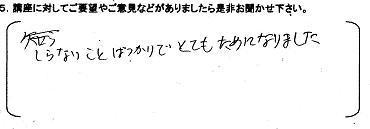 5. 講座に対してご要望やご意見などがありましたら是非お聞かせ下さい。
しらないことばっかりでとてもためになりました